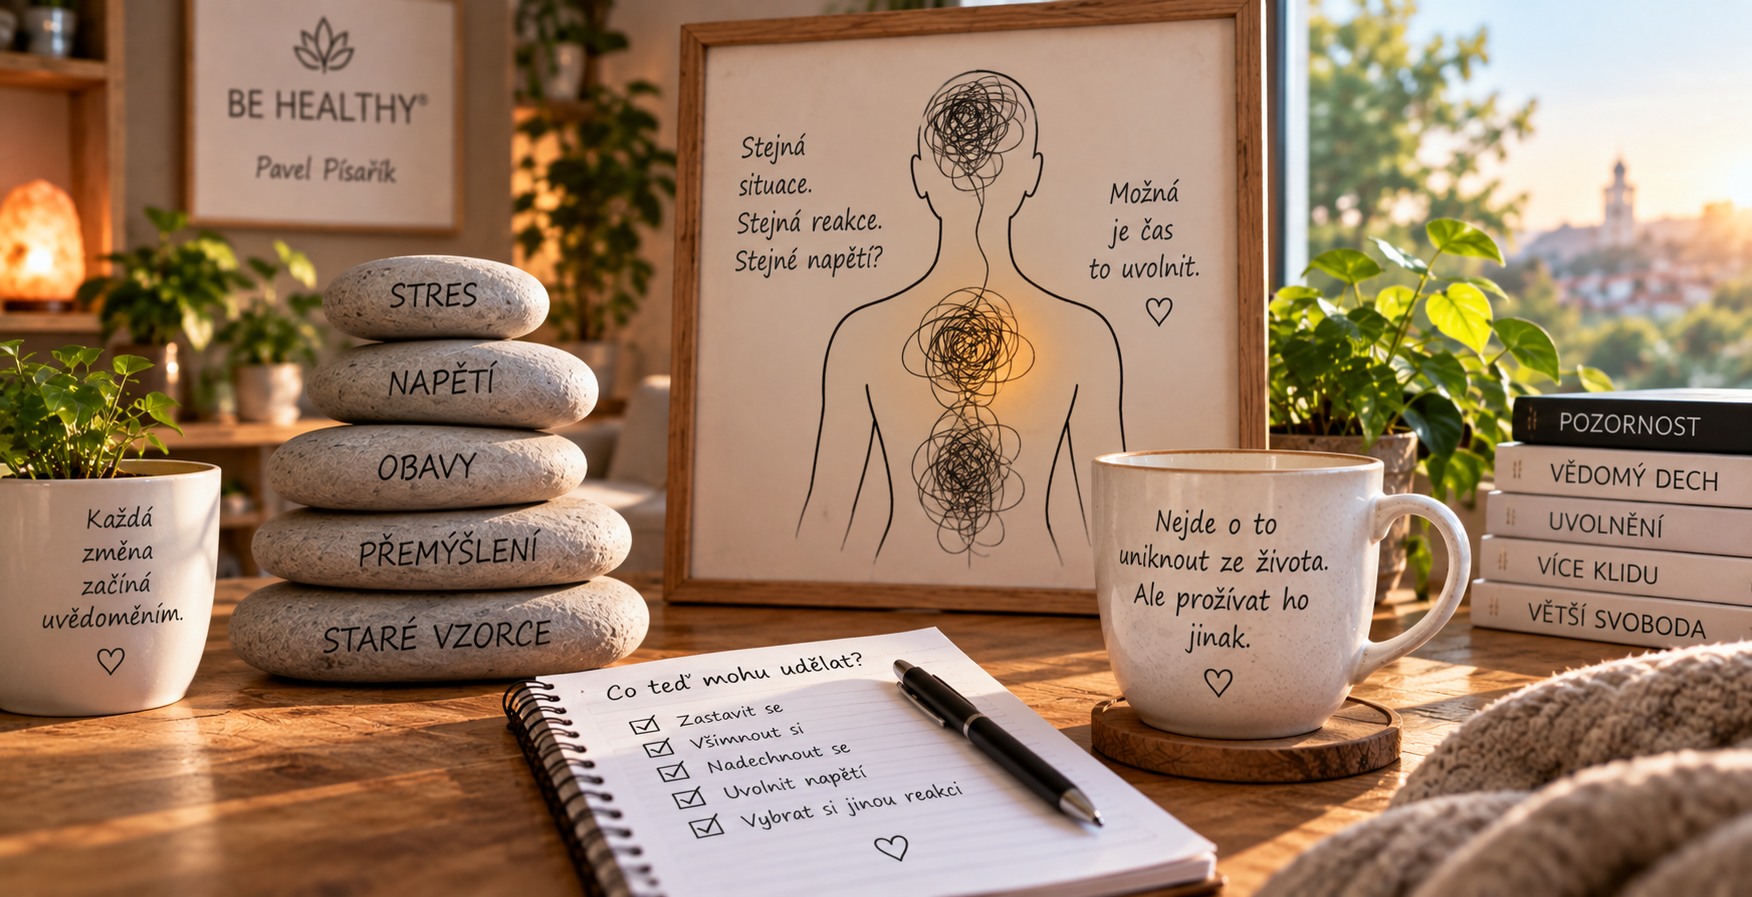 BE HEALTHY®
Pavel Písařík
Stejná
situace.
Stejná reakce.
Stejné napětí?
Možná
je čas
to uvolnit.
STRES
NAPĚTÍ
OBAVY
PŘEMÝŠLENÍ
STARÉ VZORCE
Každá
změna
začíná
uvědoměním.
Co teď mohu udělat?
Zastavit se
Všimnout si
Nadechnout se
Uvolnit napětí
Vybrat si jinou reakci
Nejde o to
uniknout ze života.
Ale prožívat ho
jinak.
POZORNOST
VĚDOMÝ DECH
UVOLNĚNÍ
VÍCE KLIDU
VĚTŠÍ SVOBODA